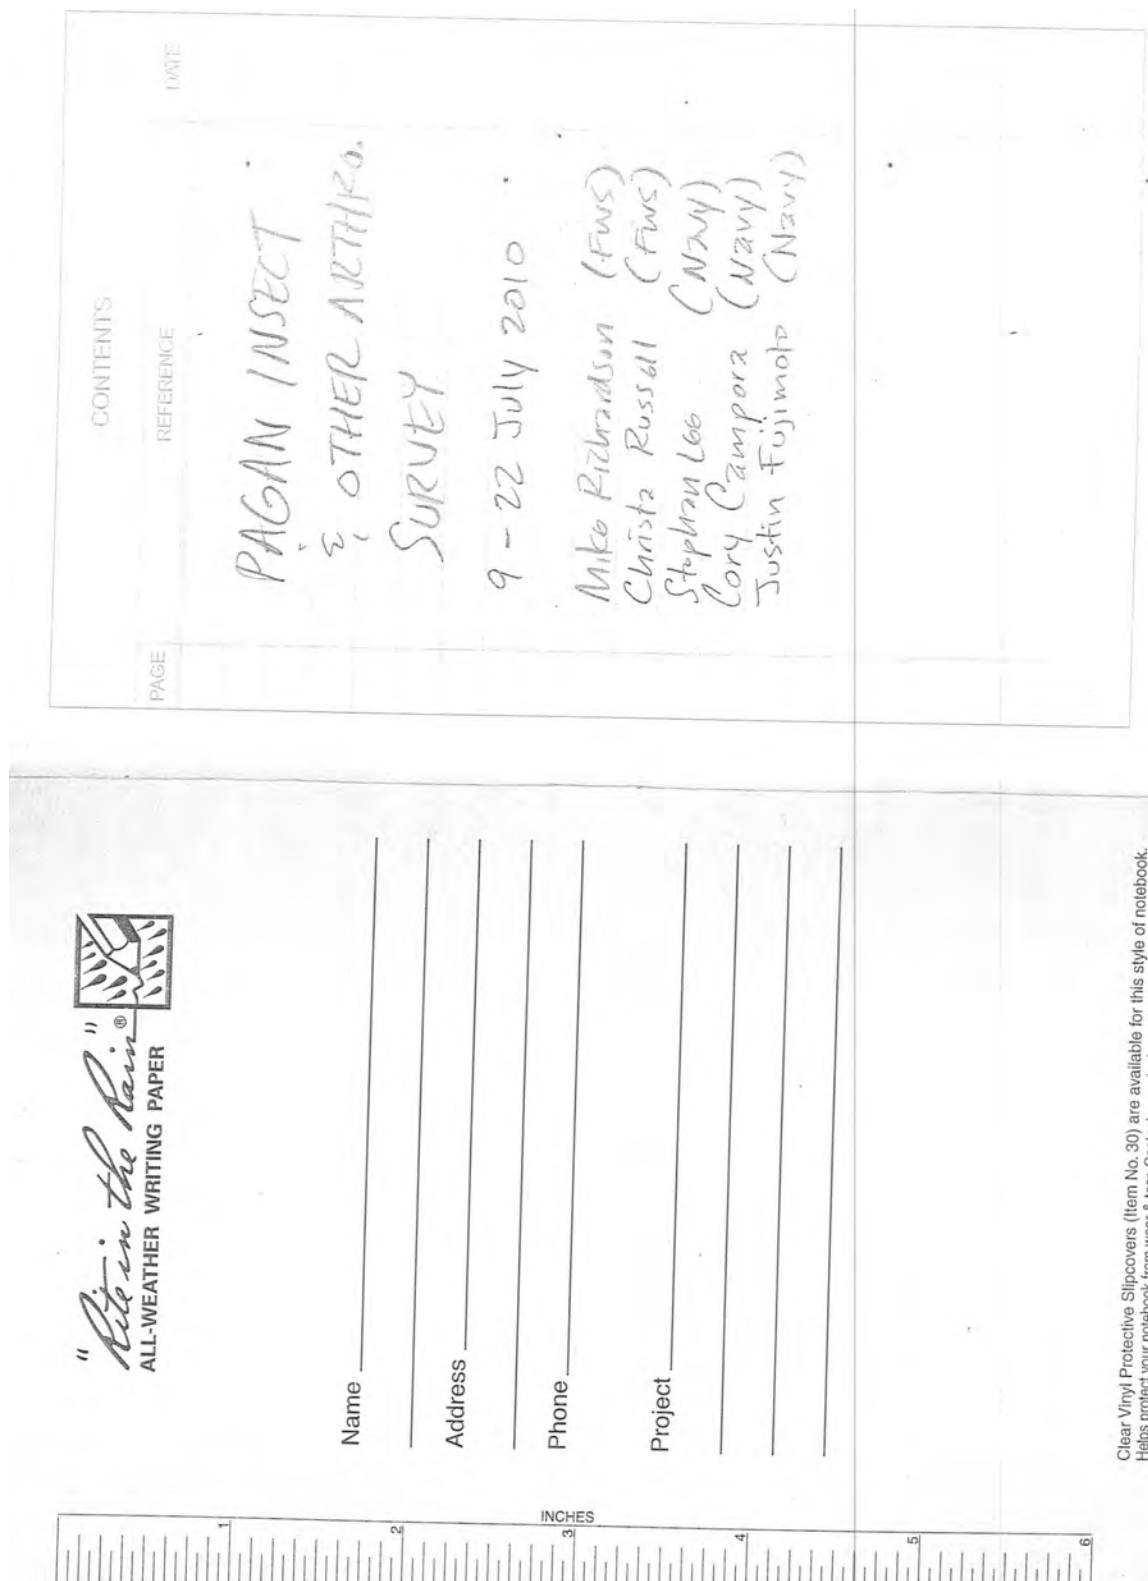 "Rite in the Rain"®
ALL-WEATHER WRITING PAPER
Name
Address
Phone
Project
INCHES
1
2
3
4
5
6
Clear Vinyl Protective Slipcovers (Item No. 30) are available for this style of notebook.
Helps protect your notebook from wear & tear.
CONTENTS
PAGE REFERENCE DATE
PAGAN INSECT
& OTHER ARTHRO.
SURVEY
9 - 22 July 2010
Mike Richardson (FWS)
Christa Russell (FWS)
Stephan Lee (Navy)
Cory Campora (Navy)
Justin Fujimoto (Navy)